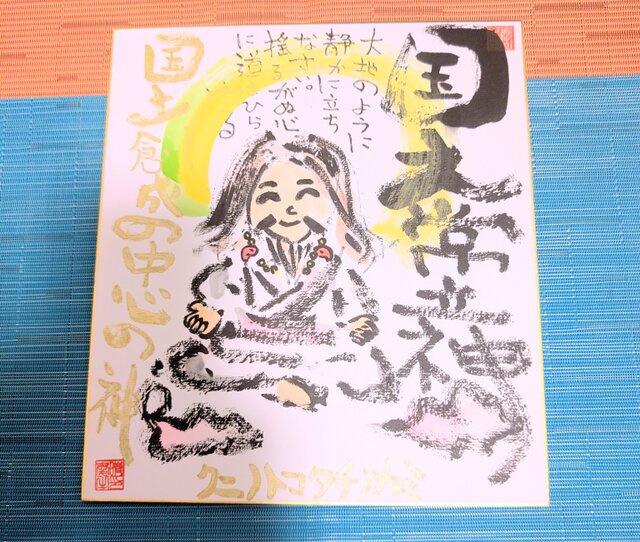 国之常立神
大地のように
静かに立ち
なさい。
揺るがぬ心
に道はひら
ける
国土創成の中心の神
クニノトコタチノカミ